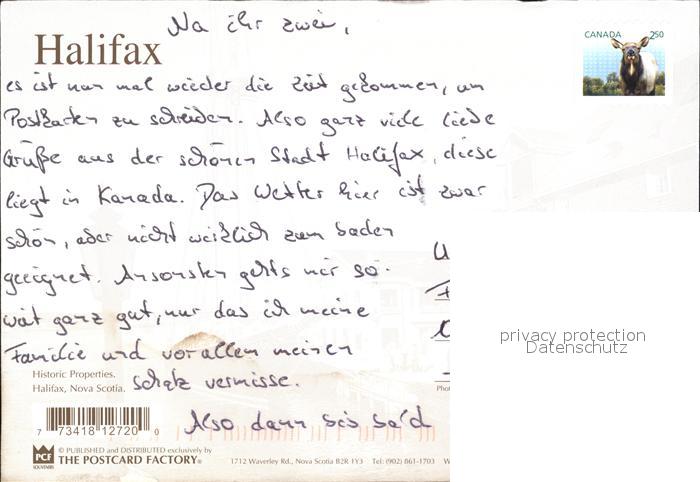 Na ihr zwei,
Halifax
CANADA 250
es ist nun mal wieder die Zeit gekommen, um
Postkarten zu schreiben. Also ganz viele liebe
Grüße aus der schönen Stadt Halifax, diese
liegt in Kanada. Das Wetter hier ist zwar
schön, aber nicht wirklich zum baden
geeignet. Ansonsten gehts mir so-
weit ganz gut, nur das ich meine
privacy protection
Datenschutz
Familie und vor allem meinen
Historic Properties.
Halifax, Nova Scotia.
Schatz vermisse.
Also dann bis bald
7 73418 12720 0
PCF
SOUVENIRS
© PUBLISHED and DISTRIBUTED exclusively by
THE POSTCARD FACTORY®
1712 Waverley Rd., Nova Scotia B2R 1Y3 Tel: (902) 861-1703